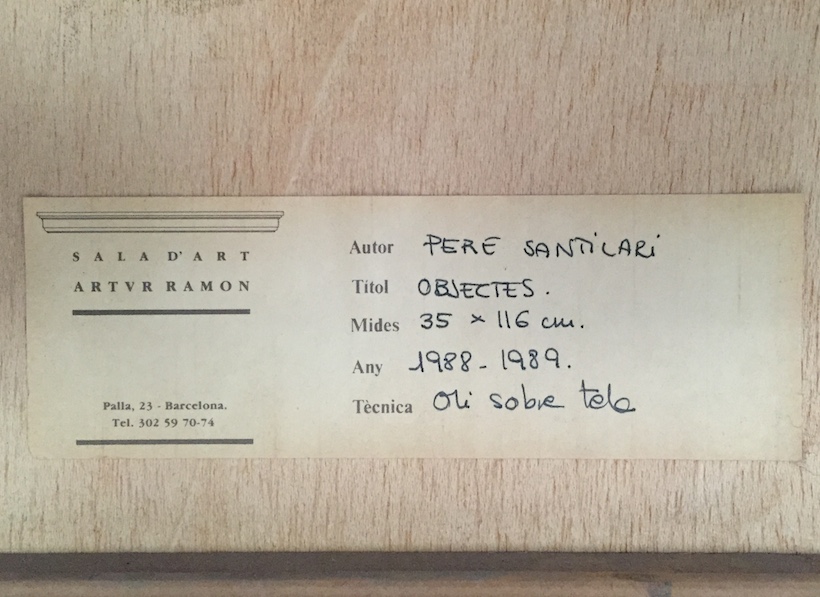 SALA D'ART
ARTVR RAMON
Palla, 23 - Barcelona.
Tel. 302 59 70-74
Autor PERE SANTILARI
Títol OBJECTES.
Mides 35 × 116 cm.
Any 1988-1989.
Tècnica Oli sobre tela